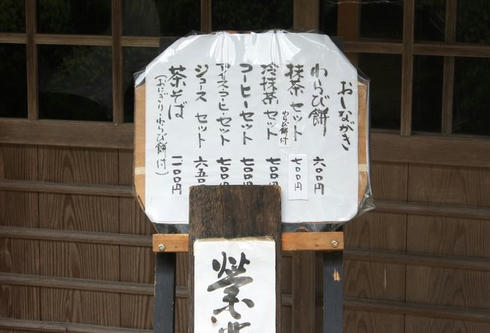 おしながき
わらび餅 六〇〇円
抹茶セット わらび餅付 七〇〇円
冷抹茶セット 七〇〇円
コーヒーセット 七〇〇円
アイスコーヒーセット 七〇〇円
ジュースセット 六五〇円
茶そば 一一〇〇円
(おにぎり・わらび餅付)
営